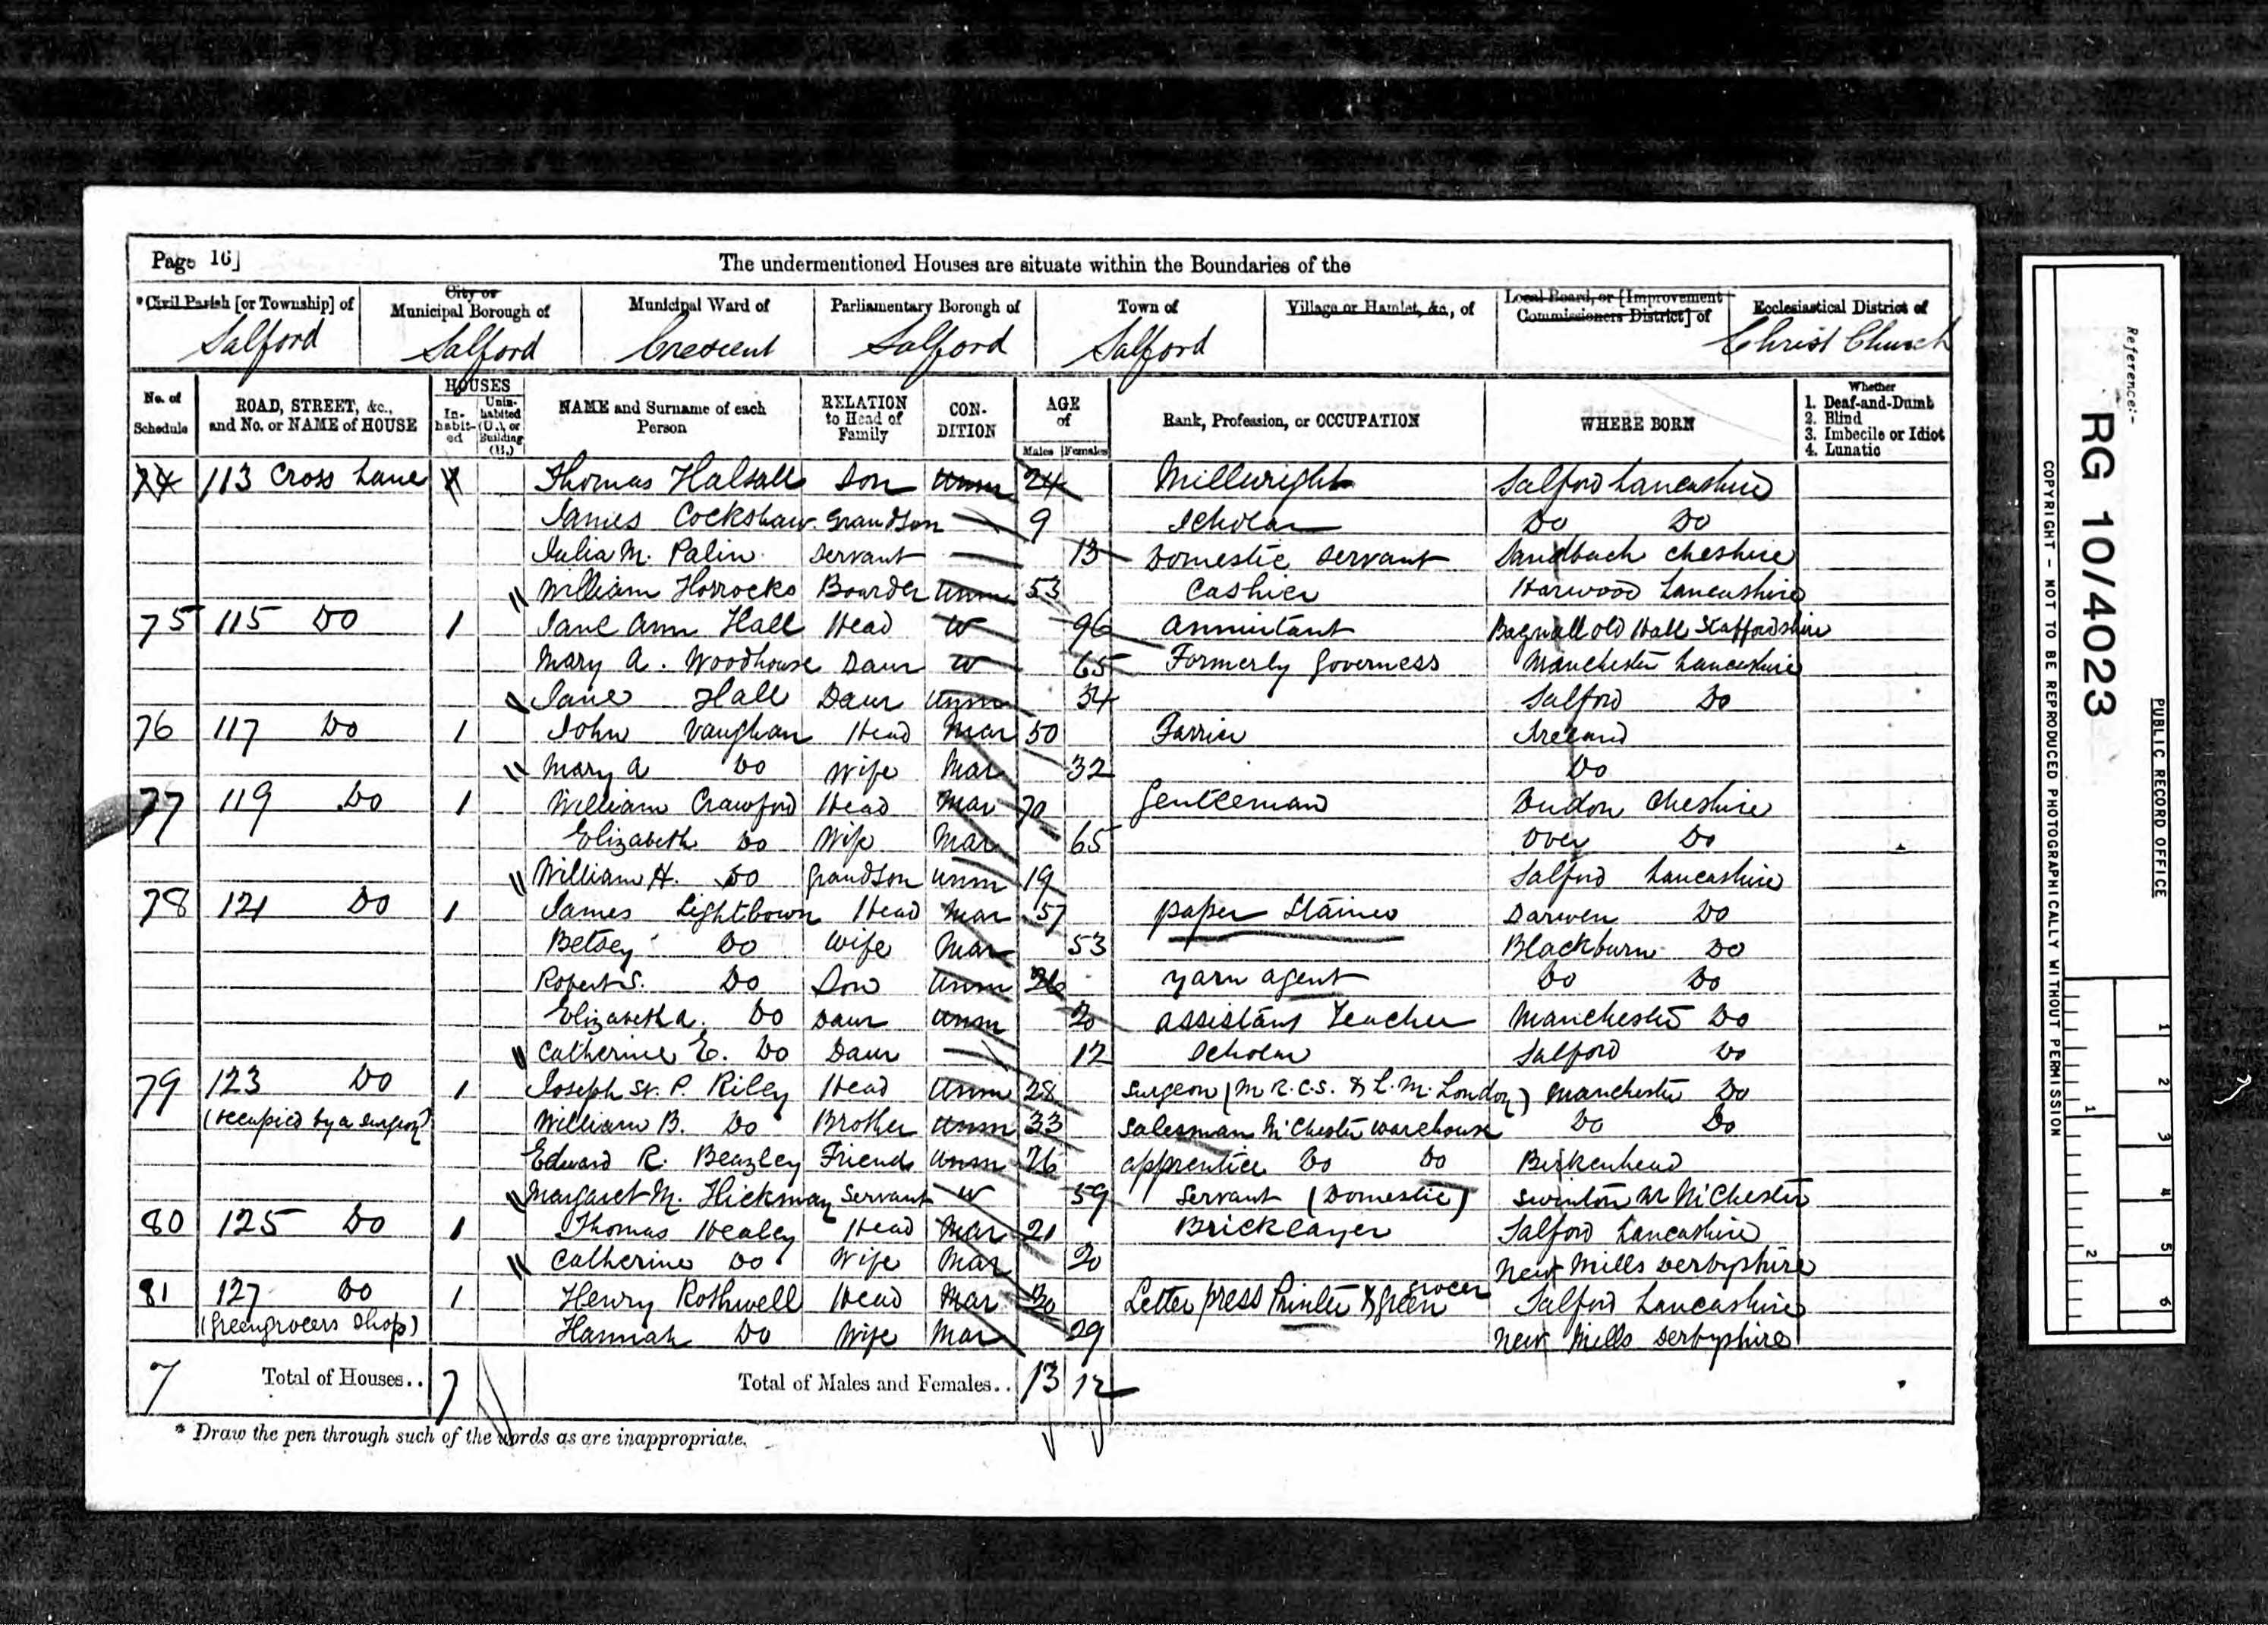 Page 16]
The undermentioned Houses are situate within the Boundaries of the
*Civil Parish [or Township] of
City or Municipal Borough of
Municipal Ward of
Parliamentary Borough of
Town of
Village or Hamlet, &c., of
Local Board, or [Improvement Commissioners District] of
Ecclesiastical District of
Salford Salford Crescent Salford Salford Christ Church
No. of Schedule
ROAD, STREET, &c., and No. or NAME of HOUSE
HOUSES
In-habit-ed
Unin-habited (U.), or Building (B.)
NAME and Surname of each Person
RELATION to Head of Family
CON-DITION
AGE of
Males Females
Rank, Profession, or OCCUPATION
WHERE BORN
Whether
1. Deaf-and-Dumb
2. Blind
3. Imbecile or Idiot
4. Lunatic
74 113 Cross Lane Thomas Halsall Son Unm 24 Millwright Salford Lancashire
James Cockshaw Grandson 9 Scholar Do Do
Julia M. Palin Servant 13 Domestic Servant Sandbach Cheshire
William Horrocks Boarder Unm 53 Cashier Harwood Lancashire
75 115 Do 1 Jane Ann Hall Head W 96 Annuitant Bagnall Old Hall Staffordshire
Mary A. Woodhouse Daur W 65 Formerly Governess Manchester Lancashire
Jane Hall Daur Unm 34 Salford Do
76 117 Do 1 John Vaughan Head Mar 50 Farrier Ireland
Mary A Do Wife Mar 32 Do
77 119 Do 1 William Crawford Head Mar 70 Gentleman Cheshire
Elizabeth Do Wife Mar 65 Over Do
William H. Do Grandson Unm 19 Salford Lancashire
78 121 Do 1 James Lightbown Head Mar 57 Paper Stainer Darwen Do
Betsey Do Wife Mar 53 Blackburn Do
Robert S. Do Son Unm 26 Yarn Agent Do Do
Elizabeth A. Do Daur Unm 20 Assistant Teacher Manchester Do
Catherine E. Do Daur 12 Scholar Salford Do
79 123 Do 1 Joseph St. P. Riley Head Unm 28 Surgeon (M.R.C.S. & L.M. London) Manchester Do
(Occupied by a Surgeon) William B. Do Brother Unm 33 Salesman M'Chester Warehouse Do Do
Edward R. Beazley Friend Unm 26 Apprentice Do Do Birkenhead
Margaret M. Hickman Servant W 59 Servant (Domestic) Swinton Nr M'Chester
80 125 Do 1 Thomas Healey Head Mar 21 Bricklayer Salford Lancashire
Catherine Do Wife Mar 20 New Mills Derbyshire
81 127 Do 1 Henry Rothwell Head Mar 30 Letter press Printer & green grocer Salford Lancashire
(Greengrocers Shop) Hannah Do Wife Mar 29 New Mills Derbyshire
7 Total of Houses.. 7 Total of Males and Females.. 13 12
* Draw the pen through such of the words as are inappropriate.
Reference:-
RG 10/4023
PUBLIC RECORD OFFICE
COPYRIGHT - NOT TO BE REPRODUCED PHOTOGRAPHICALLY WITHOUT PERMISSION
1
2
3
4
5
6
1
2